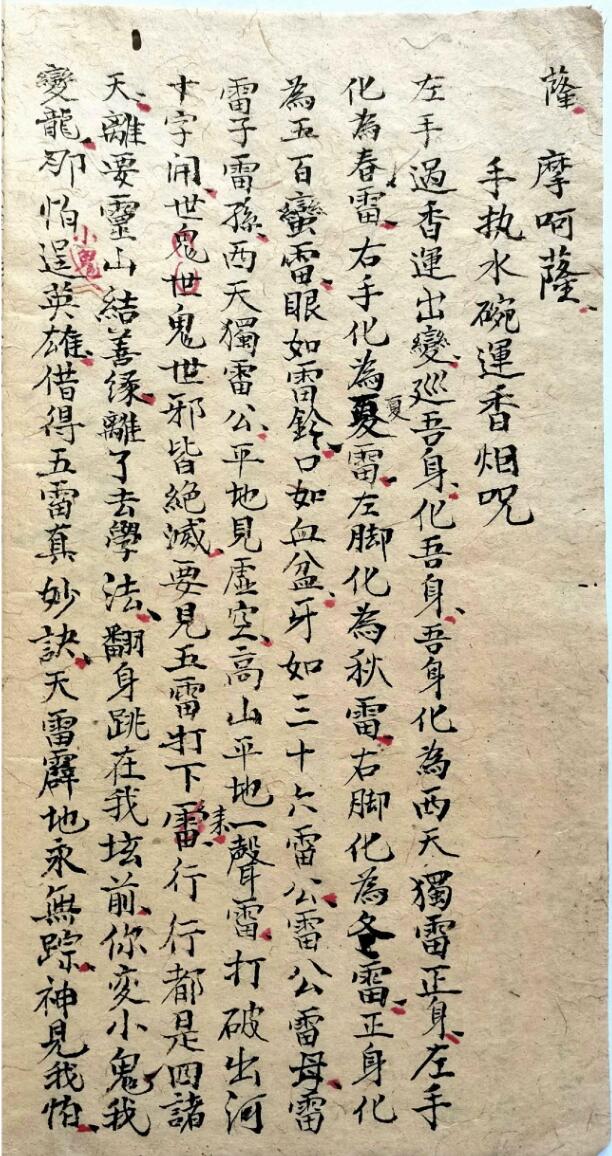 薩 摩呵薩
手执水碗運香烟咒
左手過香運出變巡吾身化吾身吾身化為西天獨雷正身左手
化為春雷右手化為夏雷左脚化為秋雷右脚化為冬雷正身化
夏
為五百蠻雷眼如雷鈴口如血盆牙如三十六雷公雷公雷母雷
雷子雷孫西天獨雷公平地見虛空高山平地一聲雷打破出河
十字闹世鬼世鬼世邪皆絕滅要見五雷打下雷行行都是四諸
来
天離要靈山結善緣離了去學法翻身跳在我坛前你変小鬼我
變龍那怕逞英雄借得五雷真妙訣天雷霹地永無踪神見我怕
小鬼